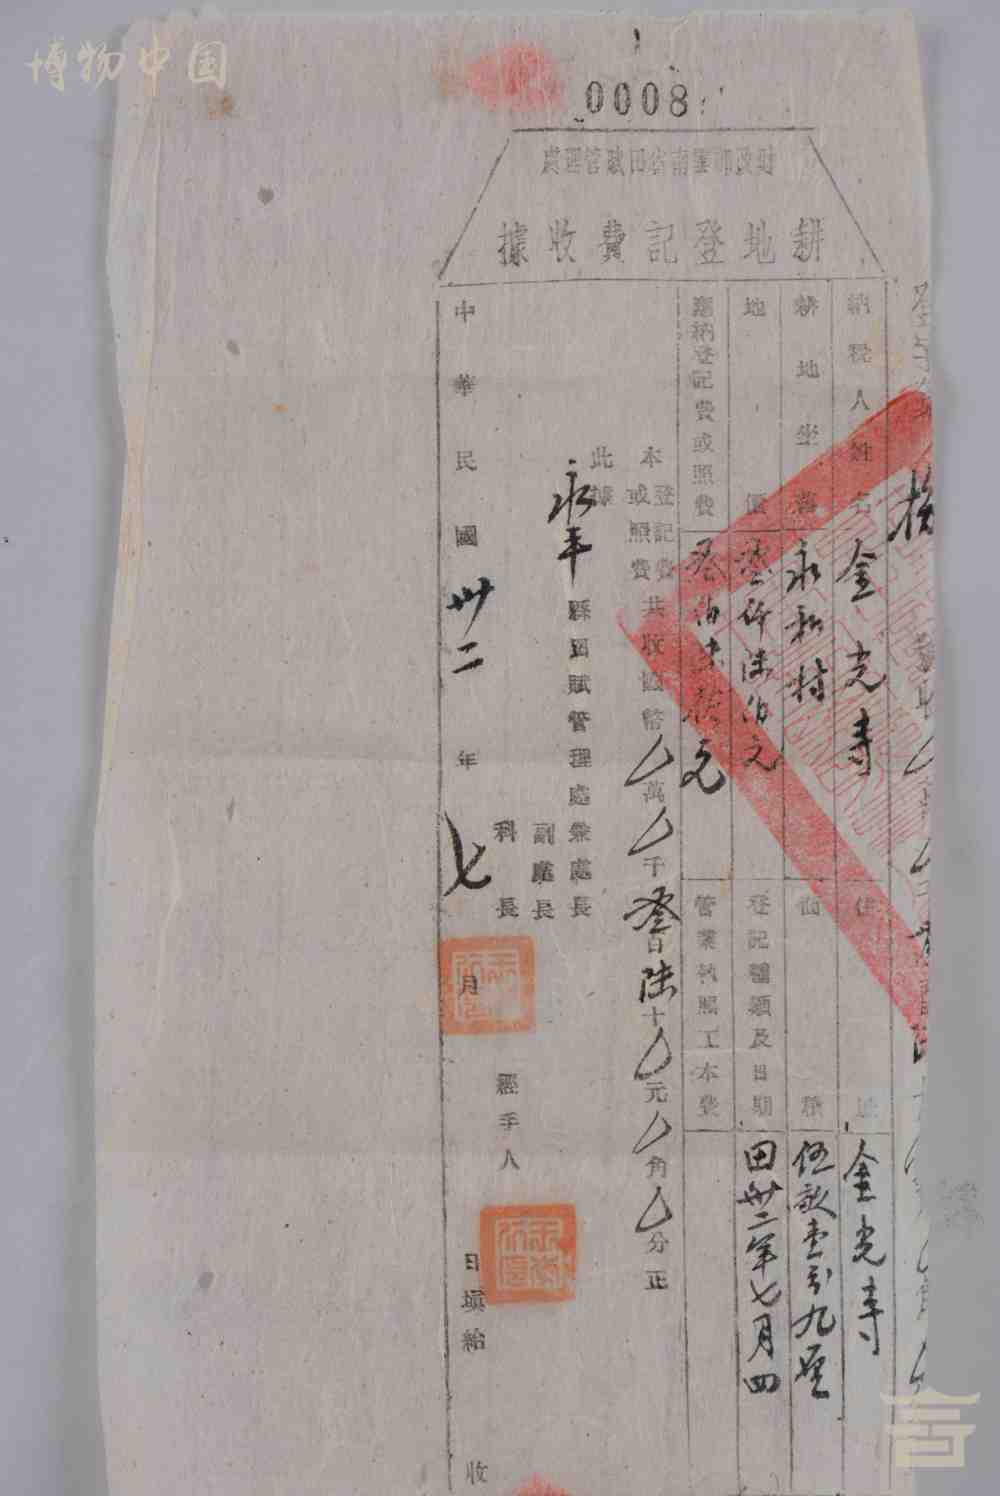 博物中国
0008
財政部雲南省田賦管理處
耕地登記費收據
納稅人姓名 金光寺 住址 金光寺
耕地坐落 永和村 面積 伍畝壹分九厘
地價 壹仟陸佰元 登記種類及日期 田卅二年七月四
應納登記費或照費 叁佰陸拾元 管業執照工本費
本登記費或照費共收國幣 萬 千叁百陸十 元 角 分正
此據
永平縣田賦管理處兼處長
副處長
科長 經手人
中華民國卅二年七月 日填給
收